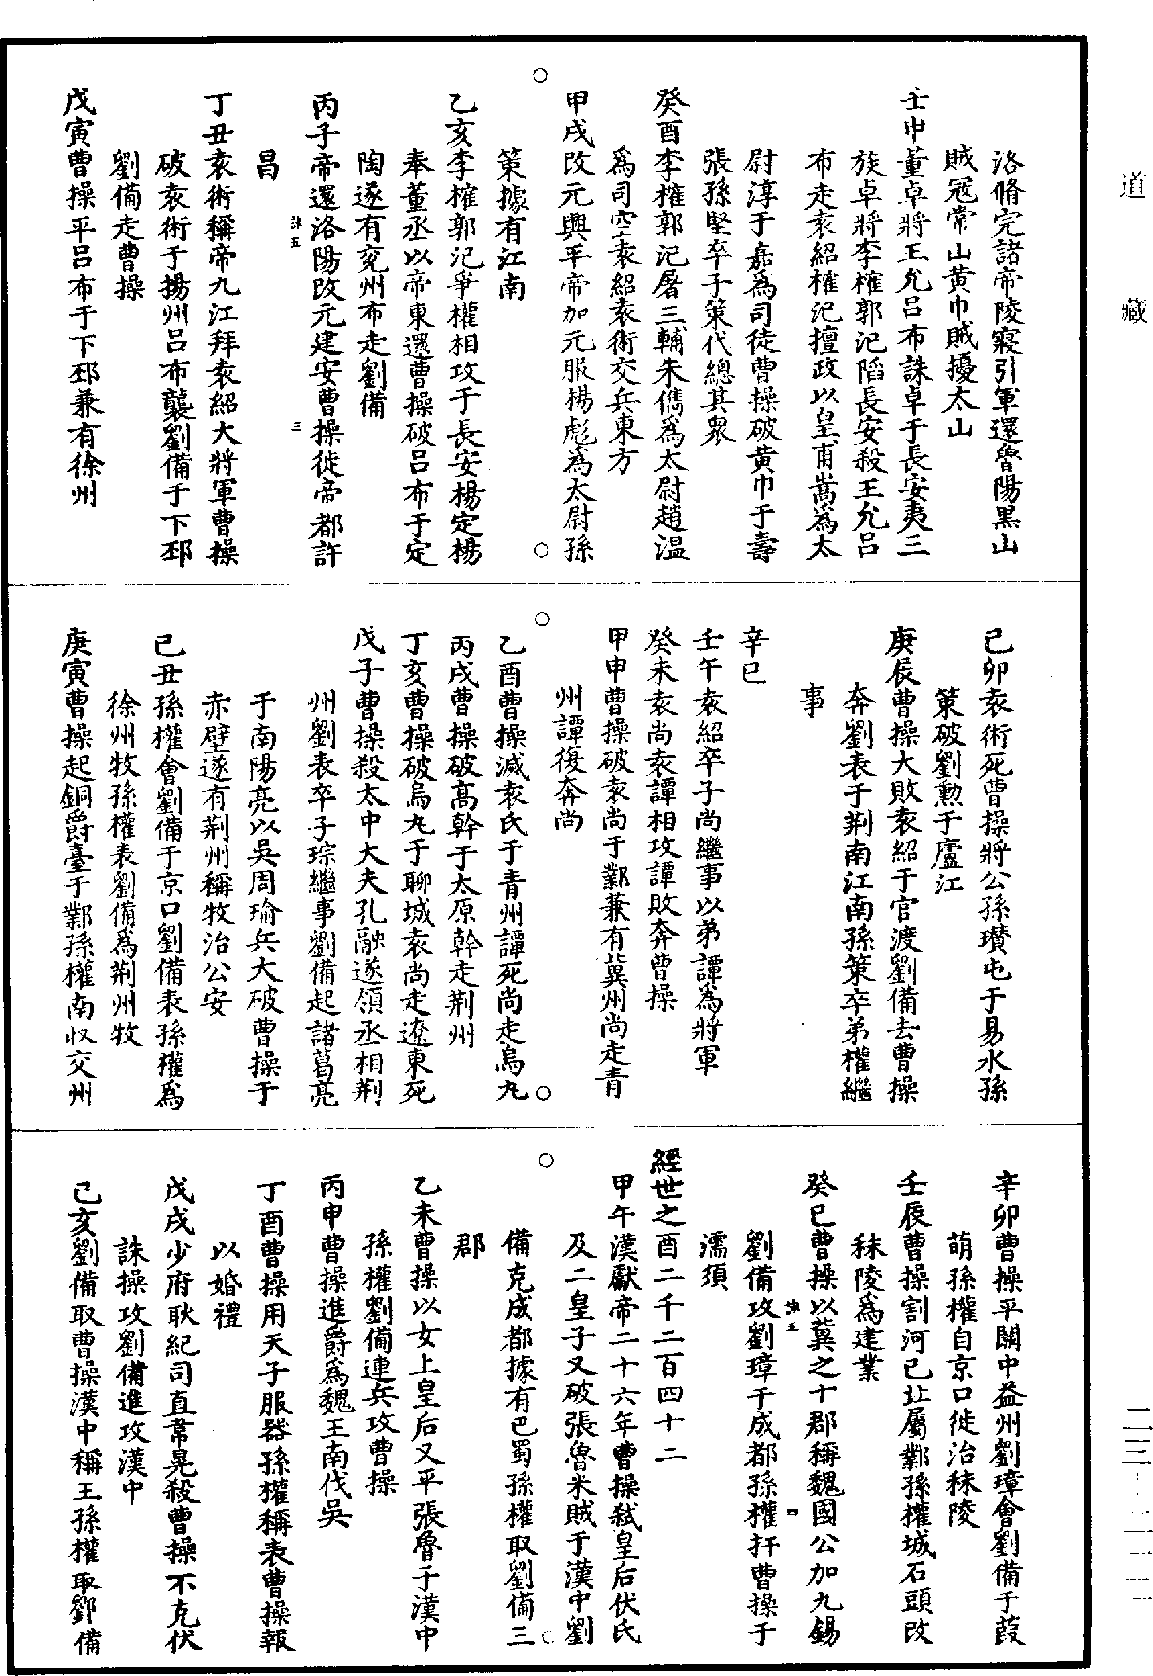 道藏
洛脩完諸帝陵寢引軍還魯陽黑山
賊寇常山黃巾賊擾太山
壬申董卓將王允呂布誅卓于長安夷三
族卓將李榷郭汜䧟長安殺王允呂
布走袁紹榷汜擅政以皇甫嵩爲太
尉淳于嘉爲司徒曹操破黃巾于壽
張孫堅卒子策代總其衆
癸酉李榷郭汜屠三輔朱儁爲太尉趙溫
爲司空袁紹袁術交兵東方
甲戌改元興平帝加元服楊彪爲太尉孫
策據有江南
乙亥李榷郭汜爭權相攻于長安楊定楊
奉董丞以帝東還曹操破呂布于定
陶遂有兗州布走劉備
丙子帝還洛陽改元建安曹操徙帝都許
昌
丁丑袁術稱帝九江拜袁紹大將軍曹操
破袁術于揚州呂布襲劉備于下邳
劉備走曹操
戊寅曹操平呂布于下邳兼有徐州
己卯袁術死曹操將公孫瓚屯于易水孫
策破劉勳于廬江
庚辰曹操大敗袁紹于官渡劉備去曹操
奔劉表于荆南江南孫策卒弟權繼
事
辛巳
壬午袁紹卒子尚繼事以弟譚爲將軍
癸未袁尚袁譚相攻譚敗奔曹操
甲申曹操破袁尚于鄴兼有冀州尚走青
州譚復奔尚
乙酉曹操滅袁氏于青州譚死尚走烏丸
丙戌曹操破高幹于太原幹走荆州
丁亥曹操破烏丸于聊城袁尚走遼東死
戊子曹操殺太中大夫孔融遂領丞相荆
州劉表卒子琮繼事劉備起諸葛亮
于南陽亮以吳周瑜兵大破曹操于
赤壁遂有荆州稱牧治公安
己丑孫權會劉備于京口劉備表孫權爲
徐州牧孫權表劉備爲荆州牧
庚寅曹操起銅爵臺于鄴孫權南收交州
辛卯曹操平關中益州劉璋會劉備于葭
萌孫權自京口徙治秣陵
壬辰曹操割河已北屬鄴孫權城石頭改
秣陵爲建業
癸巳曹操以冀之十郡稱魏國公加九錫
劉備攻劉璋于成都孫權扞曹操于
濡須
經世之酉二千二百四十二
甲午漢獻帝二十六年曹操弒皇后伏氏
及二皇子又破張魯米賊于漢中劉
備克成都據有巴蜀孫權取劉備三
郡
乙未曹操以女上皇后又平張魯于漢中
孫權劉備連兵攻曹操
丙申曹操進爵爲魏王南伐吳
丁酉曹操用天子服器孫權稱表曹操報
以婚禮
戊戌少府耿紀司直韋晃殺曹操不克伏
誅操攻劉備進攻漢中
己亥劉備取曹操漢中稱王孫權取劉備